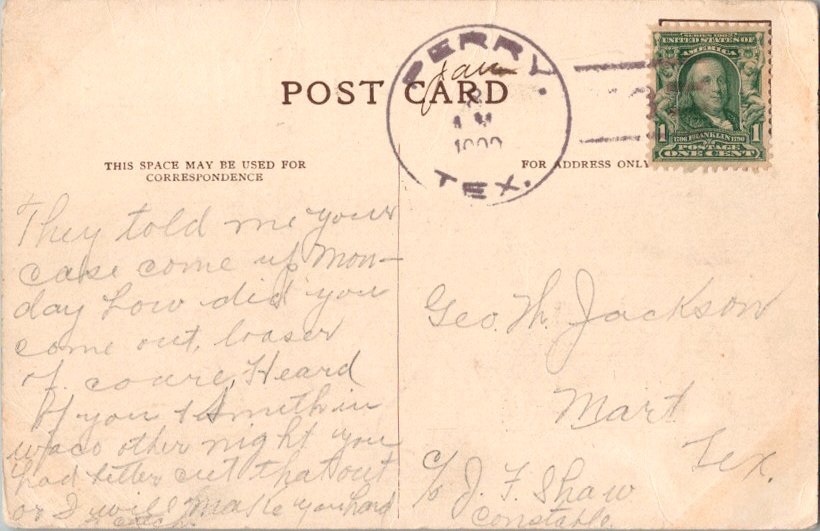 POST CARD
PERRY.
Jan
2
A M
1909
TEX.
SERIES 1902
UNITED STATES OF
AMERICA
1706 FRANKLIN 1790
1 1
POSTAGE
ONE CENT
THIS SPACE MAY BE USED FOR
CORRESPONDENCE
FOR ADDRESS ONLY
They told me your
case come up Mon-
day how did you
come out, looser
of coure, Heard
of you & Smith in
waco other night you
had better cut that out
or I will make you hard
to catch.
Geo. W. Jackson
Mart
Tex.
c/o J. F. Shaw
Constable.